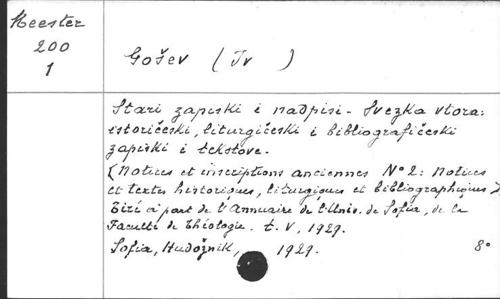 Meester
200
1
Gošev (Iv )
Stari zapiski i nadpisi - Svezka vtora:
istoričeski, liturgičeski i bibliografičeski
zapiski i tekstove.
(Notices et inscriptions anciennes N°2: Notices
et textes historiques, liturgiques et bibliographiques)
Tiré à part de l'Annuaire de l'Univ. de Sofia, de la
Faculté de Théologie. t. V, 1929.
Sofia, Hudožnik, 1929. 8°